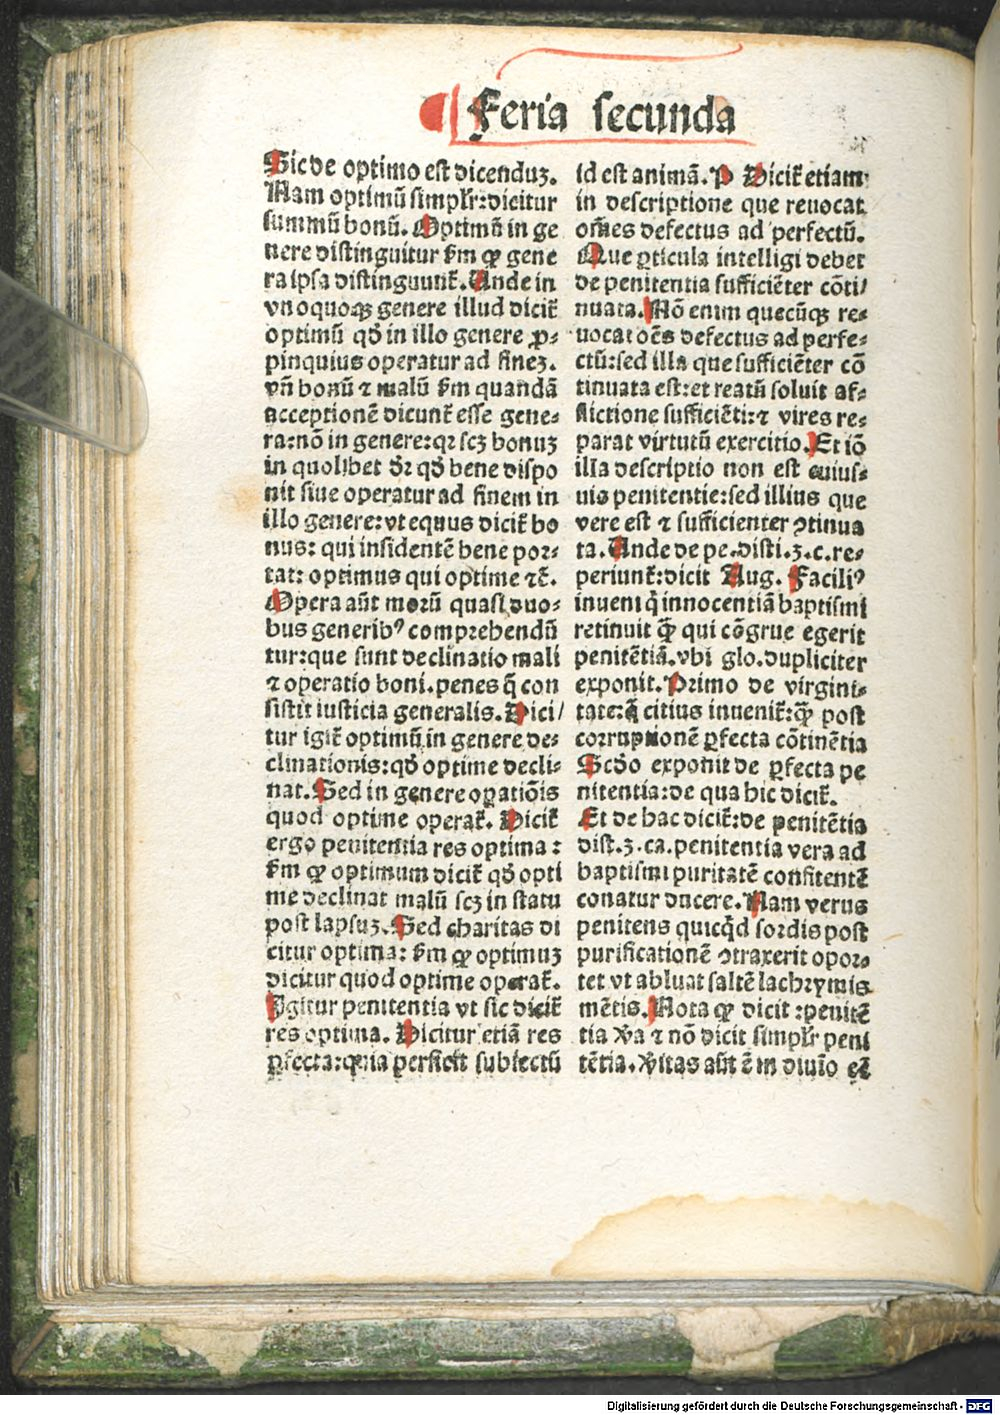 Feria secunda
Sic de optimo est dicenduȝ.
Nam optimū simplr̄:dicitur
summū bonū. Optimū in ge
nere distinguitur ẜm ꝙ gene
ra ipsa distinguunt̄. Unde in
vnoquoqꝫ genere illud dicit̄
optimū qd̄ in illo genere ꝓ⸗
pinquius operatur ad fineȝ.
vn̄ bonū ⁊ malū ẜm quandā
acceptionē dicunt̄ esse gene⸗
ra:nō in genere:qꝛ scȝ bonuȝ
in quolibet dr̄ qd̄ bene dispo
nit siue operatur ad finem in
illo genere:vt equus dicit̄ bo
nus: qui insidentē bene por⸗
tat: optimus qui optime ⁊c̄.
Opera aūt morū quasi duo⸗
bus generibꝰ comprehendū
tur:que sunt declinatio mali
⁊ operatio boni.penes q̄ con
sistit iusticia generalis. Dici/
tur igit̄ optimū in genere de⸗
clinationis:qd̄ optime decli⸗
nat. Sed in genere oꝑatiōis
quod optime operat̄. Dicit̄
ergo penitentia res optima :
ẜm ꝙ optimum dicit̄ qd̄ opti
me declinat malū scȝ in statu
post lapsuȝ. Sed charitas di
citur optima: ẜm ꝙ optimuȝ
dicitur quod optime operat̄.
Igitur penitentia vt sic dicit̄
res optima. Dicitur etiā res
ꝑfecta:quia perficit subiectū
id est animā. P Dicit̄ etiam
in descriptione que reuocat
oēs defectus ad perfectū.
Que ꝑticula intelligi debet
de penitentia sufficiēter cōti/
nuata. Nō enim quecūqꝫ re⸗
uocat oēs defectus ad perfe⸗
ctū:sed illa que sufficiēter cō
tinuata est:et reatū soluit af⸗
flictione sufficiēti:⁊ vires re⸗
parat virtutū exercitio. Et iō
illa descriptio non est cuius⸗
uis penitentie:sed illius que
vere est ⁊ sufficienter ꝯtinua
ta. Unde de pe.disti.3.c.re⸗
periunt̄:dicit Aug. Faciliꝰ
inueni q̄ innocentiā baptismi
retinuit q̄ȝ qui cōgrue egerit
penitētiā.vbi glo.dupliciter
exponit. Primo de virgini⸗
tate:q̄ citius inuenit̄:q̄ȝ post
corruptionē ꝑfecta cōtinētia
Scd̄o exponit de ꝑfecta pe
nitentia:de qua hic dicit̄.
Et de hac dicit̄:de penitētia
dist.3.ca.penitentia vera ad
baptismi puritatē confitentē
conatur ducere. Nam verus
penitens quicqd̄ sordis post
purificationē ꝯtraxerit opor⸗
tet vt abluat saltē lachrymis
mētis. Nota ꝙ dicit :penitē
tia ꝟa ⁊ nō dicit simplr̄ peni
tētia. ꝟitas aūt ē in diuīo
Digitalisierung gefördert durch die Deutsche Forschungsgemeinschaft - DFG